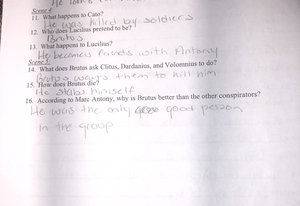 Scene 4
11. What happens to Cato?
He was killed by soldiers
12. Who does Lucilius pretend to be?
Brutus
13. What happens to Lucilius?
He becomes friends with Antony
Scene 5
14. What does Brutus ask Clitus, Dardanius, and Volumnius to do?
Brutus wants them to kill him
15. How does Brutus die?
He stabs himself
16. According to Marc Antony, why is Brutus better than the other conspirators?
He was the only good person
in the group